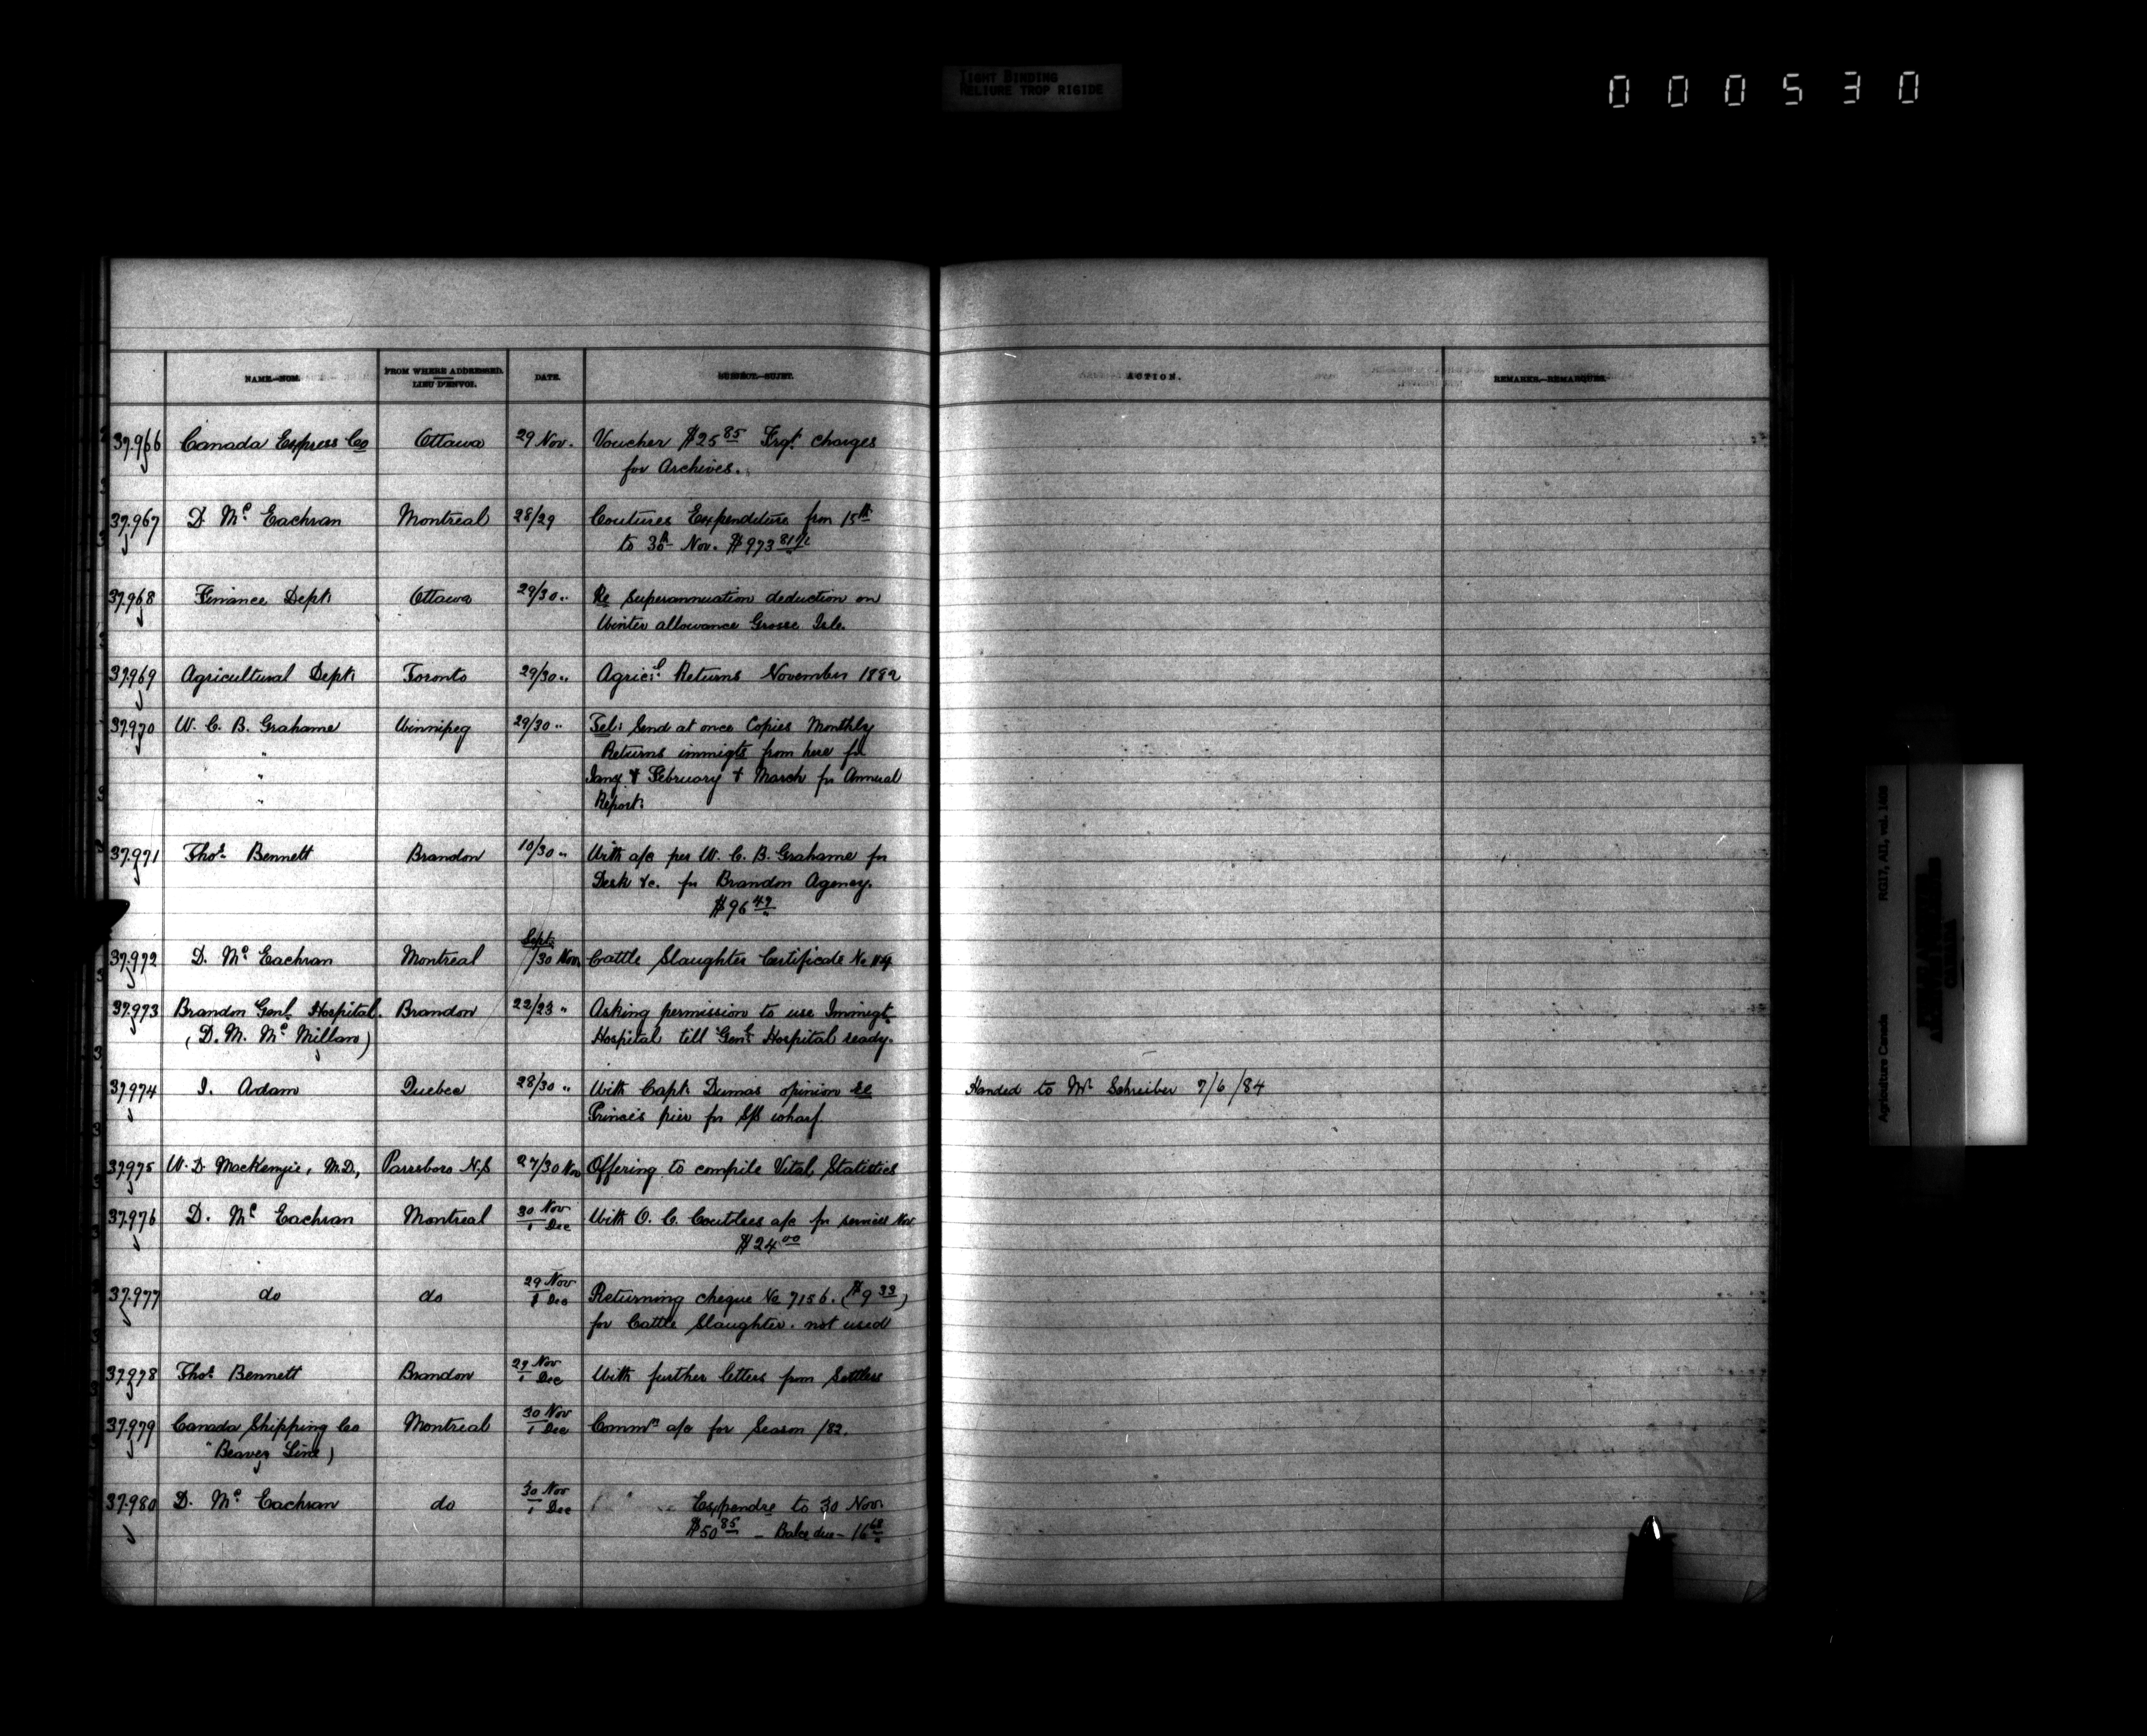 TIGHT BINDING
RELIURE TROP RIGIDE
000530
NAME.—NOM.
FROM WHERE ADDRESSED.
LIEU D'ENVOI.
DATE.
SUBJECT.—SUJET.
ACTION.
REMARKS.—REMARQUES.
37.966 Canada Express Co Ottawa 29 Nov. Voucher $25 85 Frgt. charges
for Archives.
37.967 D. Mc Eachran Montreal 28/29 Coutures Expenditure from 15th
to 30th Nov. $973
37.968 Finance Dept. Ottawa 29/30 " Re Superannuation deduction on
Winter allowance Grosse Isle.
37.969 Agricultural Dept. Toronto 29/30 " Agricl. Returns November 1882
37.970 W. C. B. Grahame Winnipeg 29/30 " Tel: Send at once Copies Monthly
" Returns immigts from here for
" Jany & February & March for Annual
" Report.
37.971 Thos. Bennett Brandon 10/30 " With a/c per W. C. B. Grahame for
Desk &c. for Brandon Agency.
$96 49
Sept.
37.972 D. Mc Eachran Montreal /30 Nov. Cattle Slaughter Certificate No 114
37.973 Brandon Genl. Hospital. Brandon 22/23 " Asking permission to use Immigt.
(D. M. Mc Millan) Hospital till Genl. Hospital ready.
37.974 I. Adam Quebec 28/30 " With Capt. Dumas opinion re Handed to Mr Schreiber 7/6/84
Princes pier for S/S wharf.
37.975 W. D. MacKenzie, M.D., Parrsboro N.S 27/30 Nov Offering to compile Vital Statistics
37.976 D. Mc Eachran Montreal 30 Nov
1 Dec With O. C. Coutlees a/c for services Nov.
$24 00
37.977 do do 29 Nov
1 Dec Returning cheque No 7156. ($9 33)
for Cattle Slaughter. not used
37.978 Thos. Bennett Brandon 29 Nov
1 Dec With further letters from Settlers
37.979 Canada Shipping Co Montreal 30 Nov
1 Dec Commn a/c for Season /82.
"Beaver Line)
37.980 D. Mc Eachran do 30 Nov
1 Dec Expendre to 30 Nov.
$50 85 — Balce due — 16 68
Agriculture Canada RG17, AII, vol. 1498